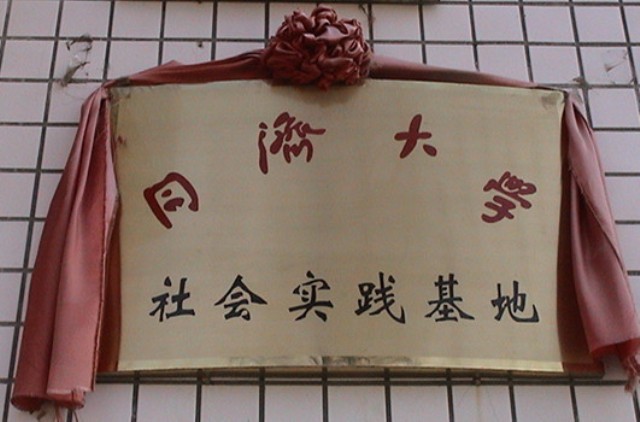 同濟大學
社会实践基地